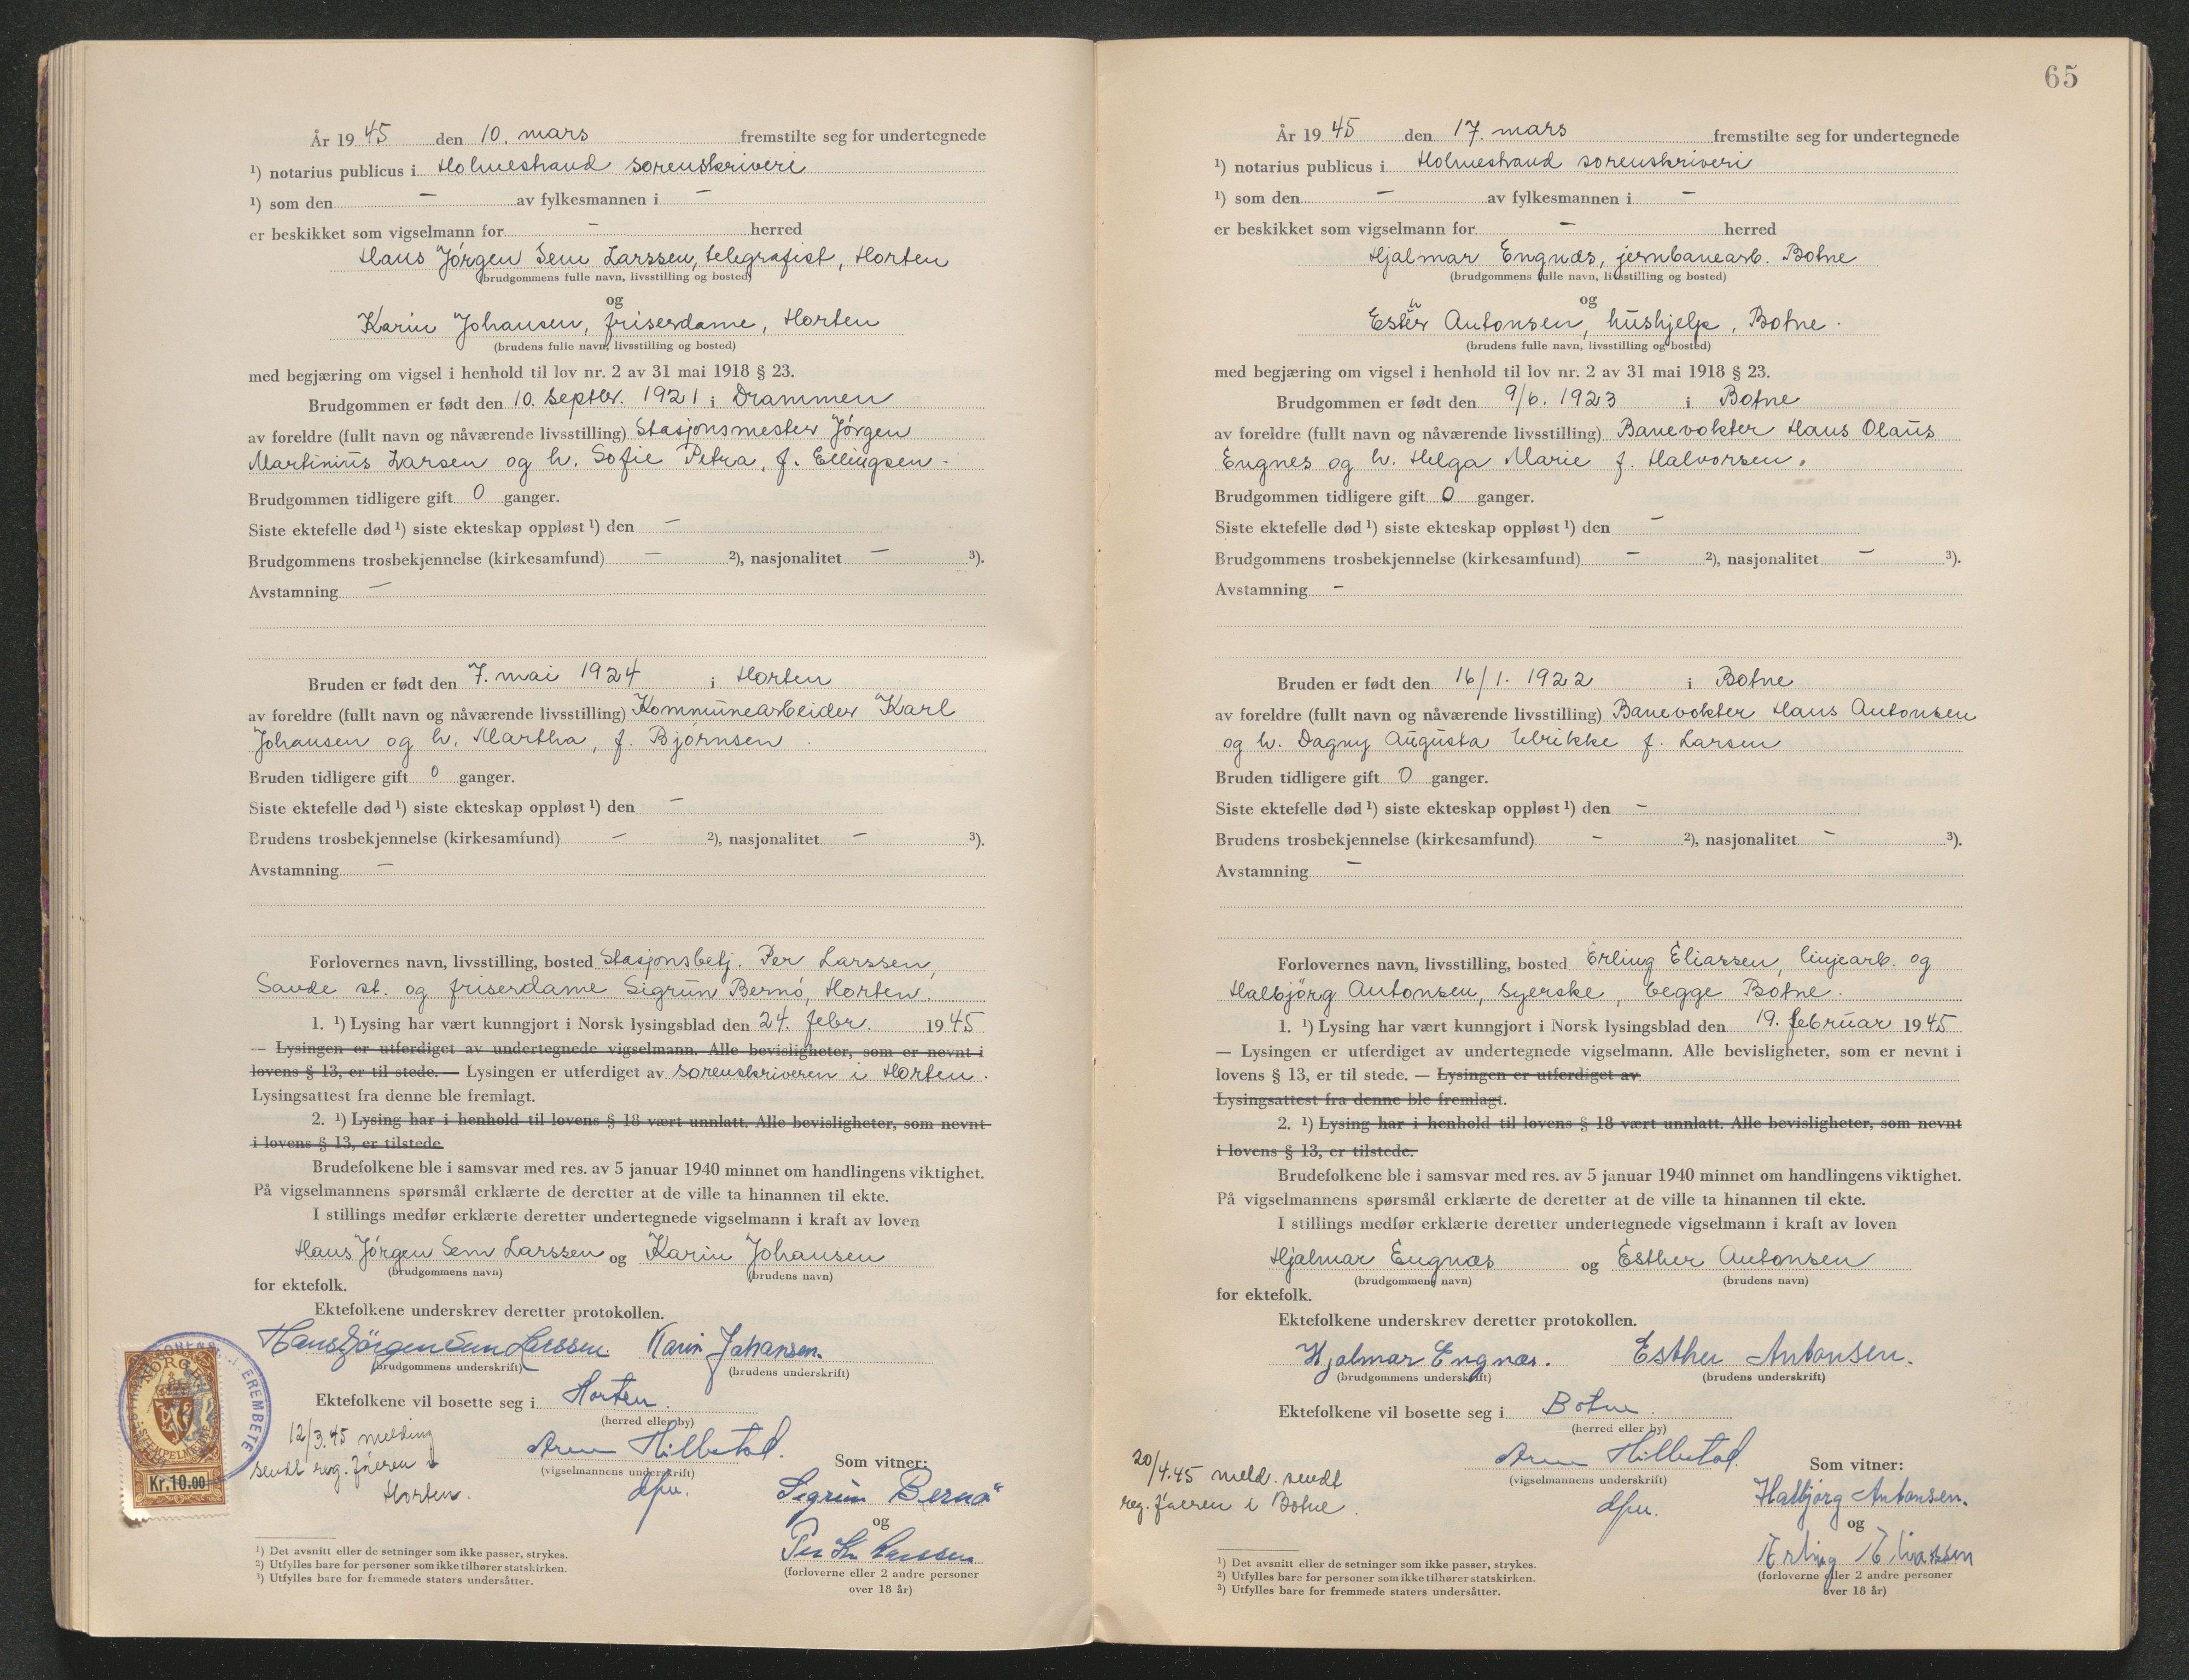 År 1945 den 10. mars fremstilte seg for undertegnede
¹) notarius publicus i Holmestrand sorenskriveri
¹) som den – av fylkesmannen i –
er beskikket som vigselmann for – herred
Hans Jörgen Sem Larssen, telegrafist, Horten
(brudgommens fulle navn, livsstilling og bosted)
og
Karin Johansen, friserdame, Horten
(brudens fulle navn, livsstilling og bosted)
med begjæring om vigsel i henhold til lov nr. 2 av 31 mai 1918 § 23.
Brudgommen er født den 10. septbr. 1921 i Drammen
av foreldre (fullt navn og nåværende livsstilling) Stasjonsmester Jörgen
Martinius Larsen og h. Sofie Petra, f. Ellingsen.
Brudgommen tidligere gift 0 ganger.
Siste ektefelle død ¹) siste ekteskap oppløst ¹) den –
Brudgommens trosbekjennelse (kirkesamfund) – ²), nasjonalitet – ³).
Avstamning –
Bruden er født den 7. mai 1924 i Horten
av foreldre (fullt navn og nåværende livsstilling) Kommunearbeider Karl
Johansen og h. Martha, f. Bjørnsen.
Bruden tidligere gift 0 ganger.
Siste ektefelle død ¹) siste ekteskap oppløst ¹) den –
Brudens trosbekjennelse (kirkesamfund) – ²), nasjonalitet – ³).
Avstamning –
Forlovernes navn, livsstilling, bosted Stasjonsbetj. Per Larssen,
Sande st. og friserdame Sigrun Bernö, Horten.
1. ¹) Lysing har vært kunngjort i Norsk lysingsblad den 24. febr. 1945
— Lysingen er utferdiget av undertegnede vigselmann. Alle bevisligheter, som er nevnt i
lovens § 13, er til stede. — Lysingen er utferdiget av sorenskriveren i Horten.
Lysingsattest fra denne ble fremlagt.
2. ¹) Lysing har i henhold til lovens § 18 vært unnlatt. Alle bevisligheter, som nevnt
i lovens § 13, er tilstede.
Brudefolkene ble i samsvar med res. av 5 januar 1940 minnet om handlingens viktighet.
På vigselmannens spørsmål erklærte de deretter at de ville ta hinannen til ekte.
I stillings medfør erklærte deretter undertegnede vigselmann i kraft av loven
Hans Jörgen Sem Larssen og Karin Johansen
(brudgommens navn) (brudens navn)
for ektefolk.
Ektefolkene underskrev deretter protokollen.
Hans Jörgen Sem Larssen. Karin Johansen.
(brudgommens underskrift) (brudens underskrift)
Ektefolkene vil bosette seg i Horten.
(herred eller by)
NORGE
STEMPELMERKE
Kr. 10.00
EREMBETE
12/3.45 melding
sendt reg. föreren i
Horten.
Arne Hillestad.
(vigselmannens underskrift)
dfm.
Som vitner:
Sigrun Bernö
og
Per Kr Larssen
(forloverne eller 2 andre personer
over 18 år)
¹) Det avsnitt eller de setninger som ikke passer, strykes.
²) Utfylles bare for personer som ikke tilhører statskirken.
³) Utfylles bare for fremmede staters undersåtter.
65
År 1945 den 17. mars fremstilte seg for undertegnede
¹) notarius publicus i Holmestrand sorenskriveri
¹) som den – av fylkesmannen i –
er beskikket som vigselmann for – herred
Hjalmar Engnæs, jernbanearb. Botne
(brudgommens fulle navn, livsstilling og bosted)
og
Esther Antonsen, hushjelp, Botne.
(brudens fulle navn, livsstilling og bosted)
med begjæring om vigsel i henhold til lov nr. 2 av 31 mai 1918 § 23.
Brudgommen er født den 9/6. 1923 i Botne
av foreldre (fullt navn og nåværende livsstilling) Banevokter Hans Olaus
Engnes og h. Helga Marie f. Halvorsen.
Brudgommen tidligere gift 0 ganger.
Siste ektefelle død ¹) siste ekteskap oppløst ¹) den –
Brudgommens trosbekjennelse (kirkesamfund) – ²), nasjonalitet – ³).
Avstamning –
Bruden er født den 16/1. 1922 i Botne
av foreldre (fullt navn og nåværende livsstilling) Banevokter Hans Antonsen
og h. Dagny Augusta Ulrikke f. Larsen
Bruden tidligere gift 0 ganger.
Siste ektefelle død ¹) siste ekteskap oppløst ¹) den –
Brudens trosbekjennelse (kirkesamfund) – ²), nasjonalitet – ³).
Avstamning –
Forlovernes navn, livsstilling, bosted Erling Eliassen, linjearb. og
Halbjörg Antonsen, syerske, begge Botne.
1. ¹) Lysing har vært kunngjort i Norsk lysingsblad den 19. februar 1945
— Lysingen er utferdiget av undertegnede vigselmann. Alle bevisligheter, som er nevnt i
lovens § 13, er til stede. — Lysingen er utferdiget av
Lysingsattest fra denne ble fremlagt.
2. ¹) Lysing har i henhold til lovens § 18 vært unnlatt. Alle bevisligheter, som nevnt
i lovens § 13, er tilstede.
Brudefolkene ble i samsvar med res. av 5 januar 1940 minnet om handlingens viktighet.
På vigselmannens spørsmål erklærte de deretter at de ville ta hinannen til ekte.
I stillings medfør erklærte deretter undertegnede vigselmann i kraft av loven
Hjalmar Engnæs og Esther Antonsen
(brudgommens navn) (brudens navn)
for ektefolk.
Ektefolkene underskrev deretter protokollen.
Hjalmar Engnæs. Esther Antonsen.
(brudgommens underskrift) (brudens underskrift)
Ektefolkene vil bosette seg i Botne.
(herred eller by)
20/4.45 meld. sendt
reg. föreren i Botne.
Arne Hillestad.
(vigselmannens underskrift)
dfm.
Som vitner:
Halbjørg Antonsen.
og
Erling Eliassen
(forloverne eller 2 andre personer
over 18 år)
¹) Det avsnitt eller de setninger som ikke passer, strykes.
²) Utfylles bare for personer som ikke tilhører statskirken.
³) Utfylles bare for fremmede staters undersåtter.